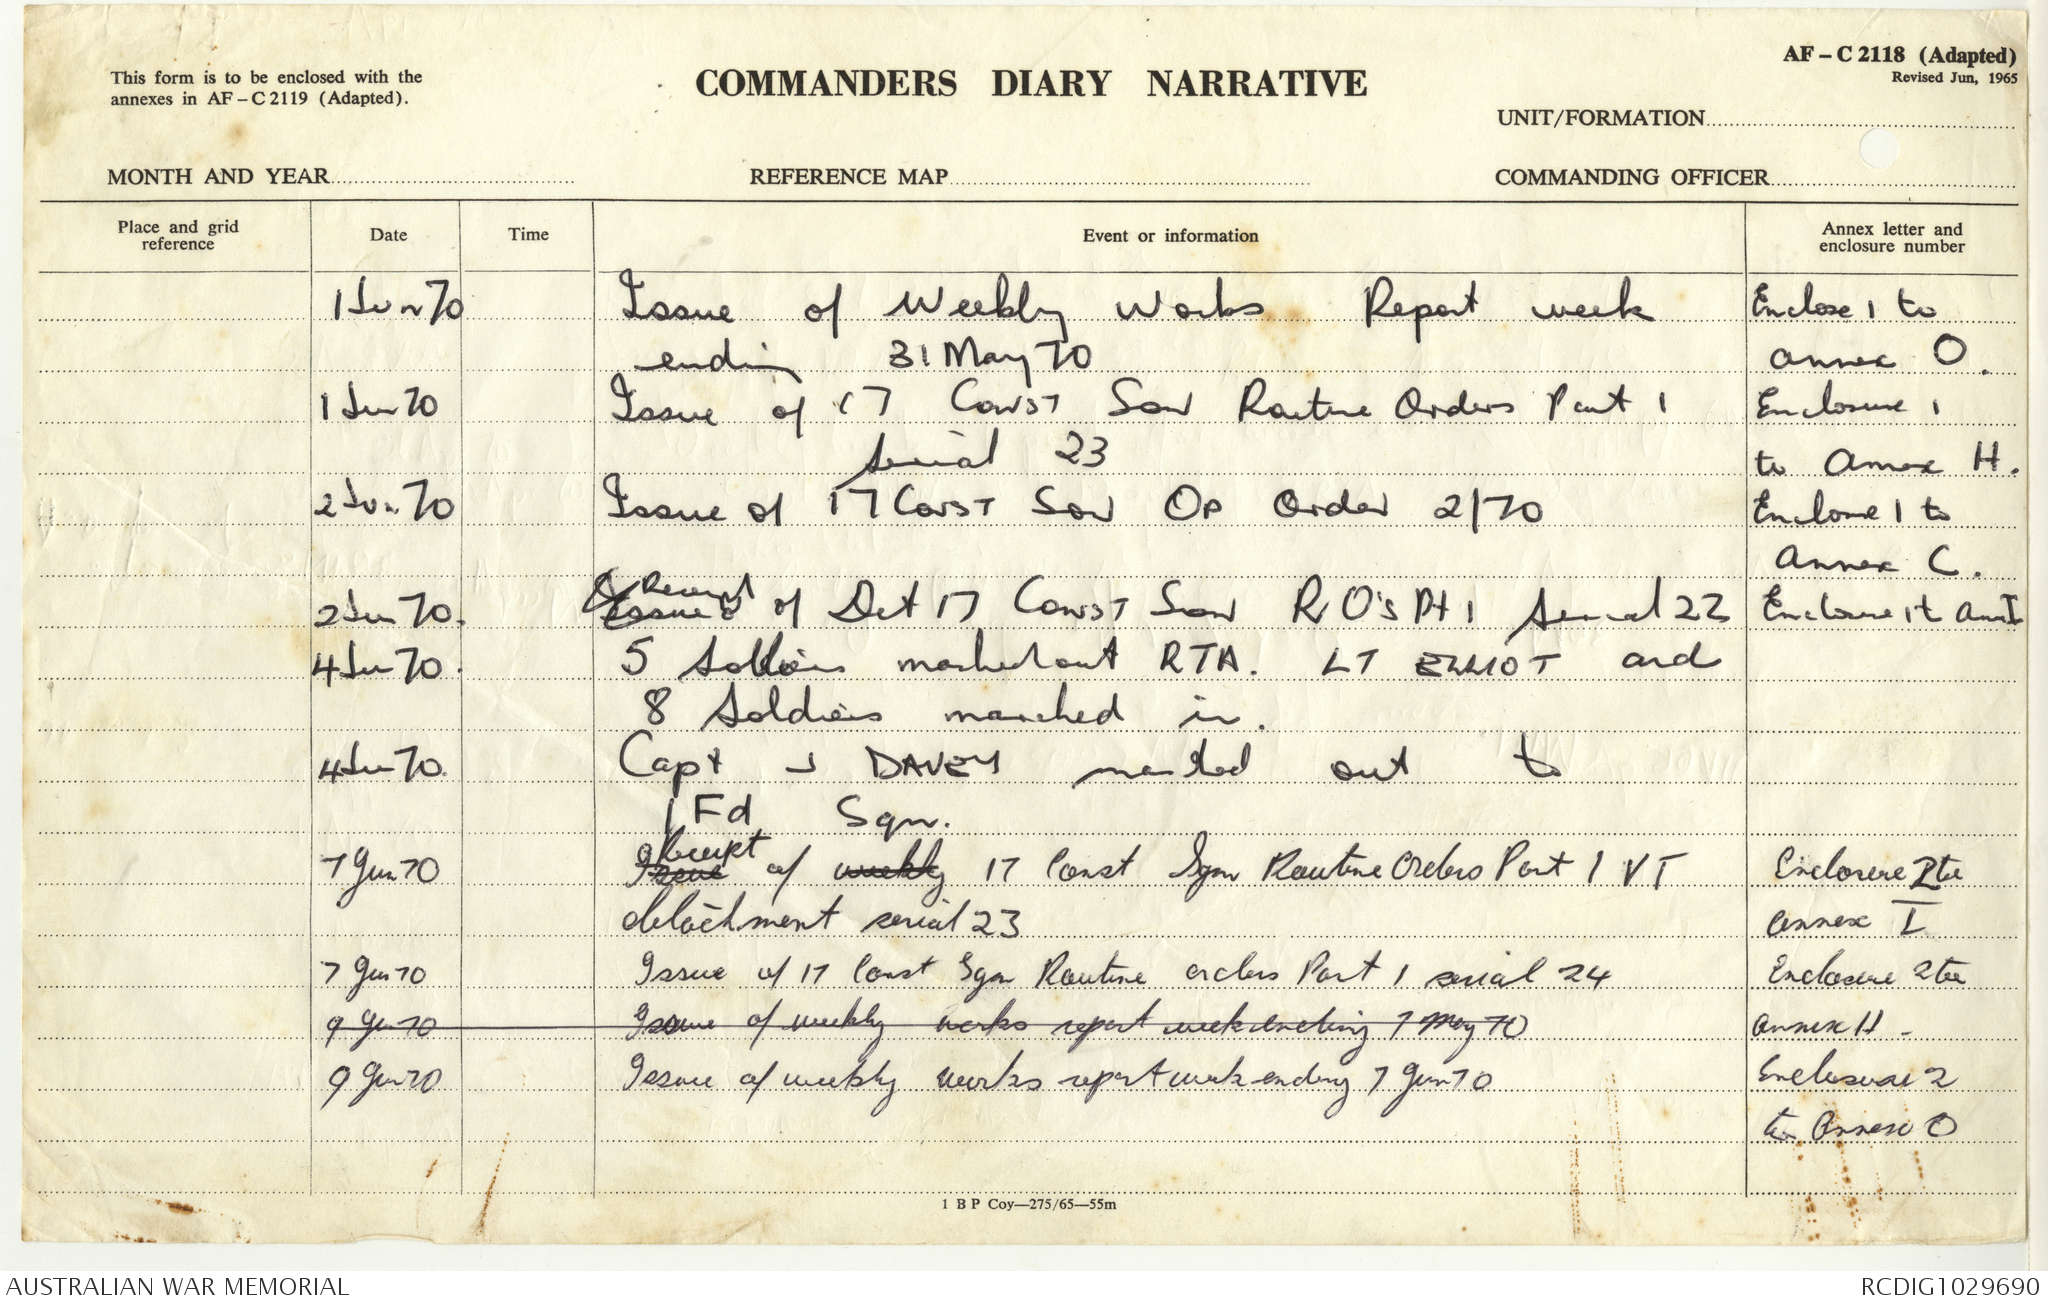 AF – C 2118 (Adapted)
Revised Jun, 1965
This form is to be enclosed with the
annexes in AF – C 2119 (Adapted).
COMMANDERS DIARY NARRATIVE
UNIT/FORMATION
MONTH AND YEAR
REFERENCE MAP
COMMANDING OFFICER
Place and grid
reference
Date
Time
Event or information
Annex letter and
enclosure number
1 Jun 70 Issue of Weekly Works Report week Enclose 1 to
ending 31 May 70 annex O.
1 Jun 70 Issue of 17 Const Sqn Routine Orders Part 1 Enclosure 1
serial 23 to annex H.
2 Jun 70 Issue of 17 Const Sqn Op Order 2/70 Enclosure 1 to
annex C.
2 Jun 70. Issue Receipt of Det 17 Const Sqn R.O's Pt 1 Serial 22 Enclosure 1 to
4 Jun 70. 5 Soldiers marched out RTA. LT ELLIOT and
8 Soldiers marched in.
4 Jun 70. Capt J DAVEY marched out to
1 Fd Sqn.
7 Jun 70 Issue Receipt of weekly 17 Const Sqn Routine Orders Part 1 VT Enclosure 2 to
detachment serial 23 annex I
7 Jun 70 Issue of 17 Const Sqn Routine orders Part 1 serial 24 Enclosure 2 to
9 Jun 70 Issue of weekly works report week ending 7 May 70 annex H -
9 Jun 70 Issue of weekly works report week ending 7 Jun 70 Enclosure 2
to Annex O
1 B P Coy—275/65—55m
AUSTRALIAN WAR MEMORIAL
RCDIG1029690